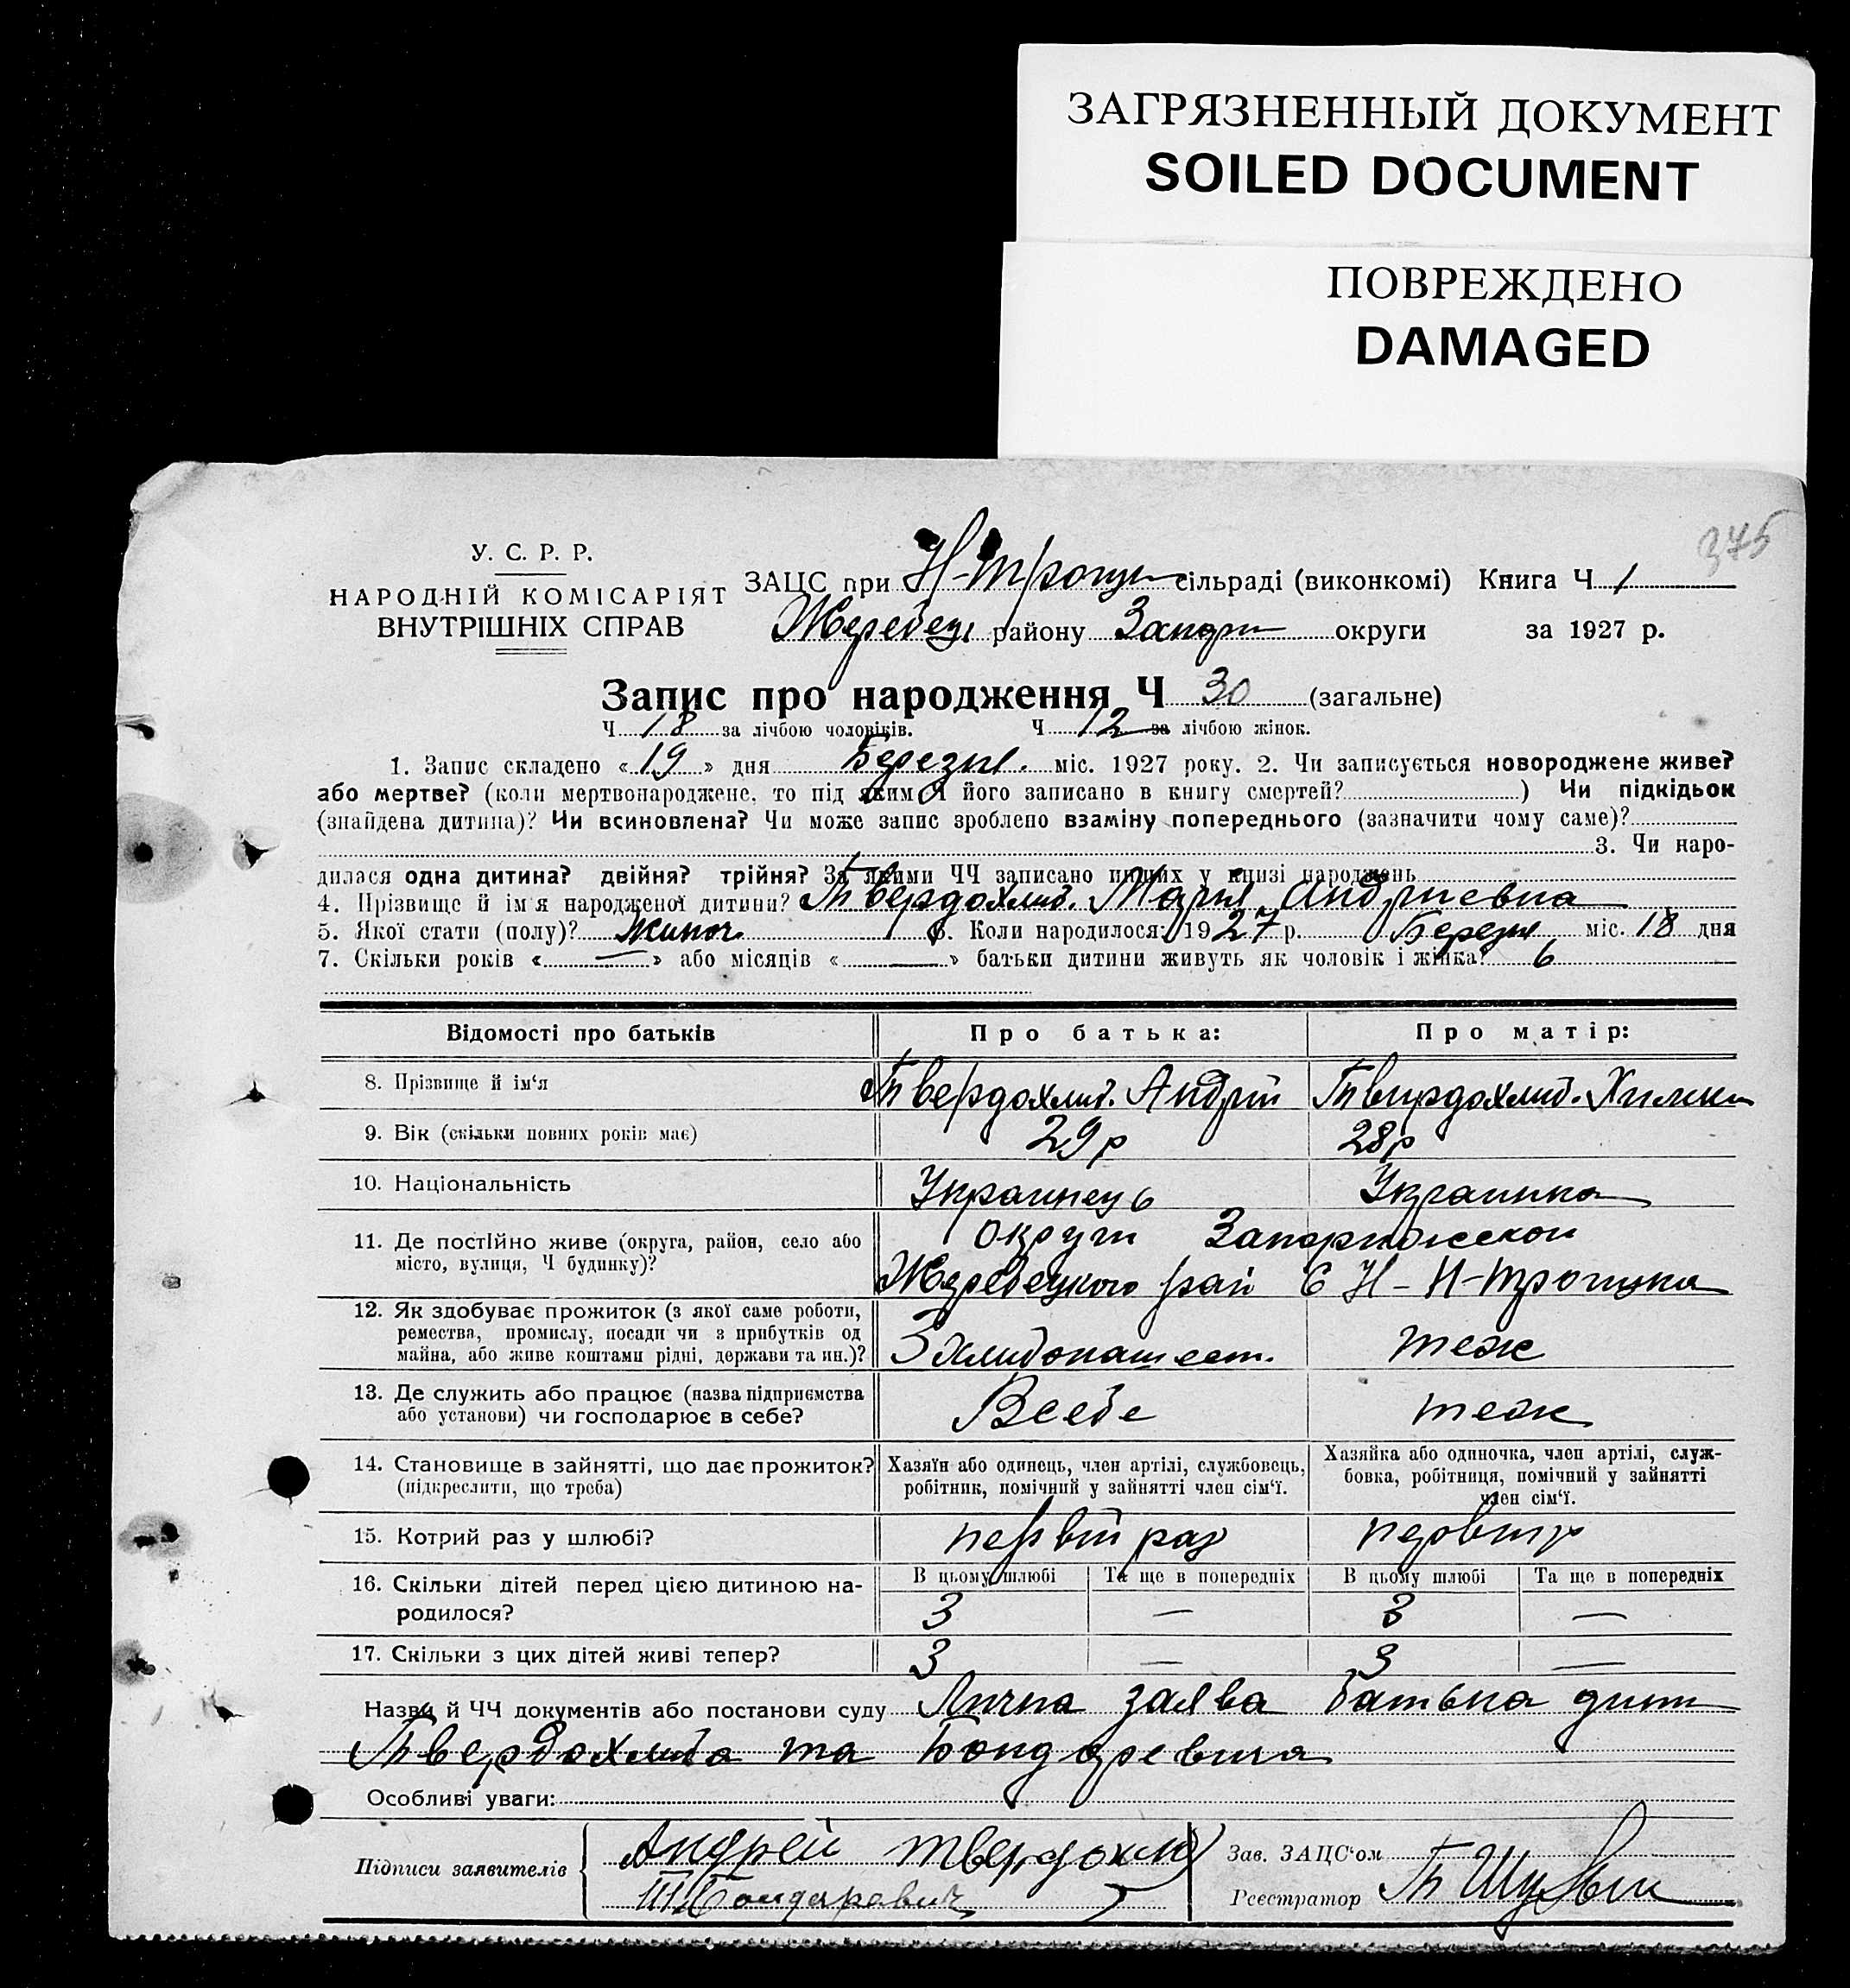 ЗАГРЯЗНЕННЫЙ ДОКУМЕНТ
SOILED DOCUMENT
ПОВРЕЖДЕНО
DAMAGED
375
У. С. Р. Р.
НАРОДНІЙ КОМІСАРІЯТ
ВНУТРІШНІХ СПРАВ
ЗАЦС при Н-Троицк сільраді (виконкомі) Книга Ч 1
Жеребец району Запор округи за 1927 р.
Запис про народження Ч 30 (загальне)
Ч 18 за лічбою чоловіків. Ч 12 за лічбою жінок.
1. Запис складено «19» дня Березня міс. 1927 року. 2. Чи записується новороджене живе?
або мертве? (коли мертвонароджене, то під яким Ч його записано в книгу смертей?) Чи підкідьок
(знайдена дитина)? Чи всиновлена? Чи може запис зроблено взаміну попереднього (зазначити чому саме)?
3. Чи наро-
дилася одна дитина? двійня? трійня? За якими ЧЧ записано инших у книзі народжень
4. Прізвище й ім'я народженої дитини? Твердохлиб. Мария Андриевна
5. Якої стати (полу)? Жиноч. 6. Коли народилося: 1927 р. Березня міс. 18 дня
7. Скільки років «—» або місяців «—» батьки дитини живуть як чоловік і жінка? 6
Відомості про батьків Про батька: Про матір:
8. Прізвище й ім'я Твердохлиб. Андрий Твирдохлиб.
9. Вік (скільки повних років має) 29 р 28 р
10. Національність Украинець Украинка
11. Де постійно живе (округа, район, село або
місто, вулиця, Ч будинку)?
округи Запорижской
Жеребецкого рай С Н-Н-Троицка
12. Як здобуває прожиток (з якої саме роботи,
ремества, промислу, посади чи з прибутків од
майна, або живе коштами рідні, держави та ин.)? З хлибопашест. теж
13. Де служить або працює (назва підприємства
або установи) чи господарює в себе? В себе теж
14. Становище в зайнятті, що дає прожиток?
(підкреслити, що треба)
Хазяїн або одинець, член артілі, службовець,
робітник, помічний у зайнятті член сім'ї.
Хазяйка або одиночка, член артілі, служ-
бовка, робітниця, помічний у зайнятті
член сім'ї.
15. Котрий раз у шлюбі? первий раз
16. Скільки дітей перед цією дитиною на-
родилося?
В цьому шлюбі Та ще в попередніх В цьому шлюбі Та ще в попередніх
3 — 3 —
17. Скільки з цих дітей живі тепер? 3 — 3 —
Назви й ЧЧ документів або постанови суду Лична заява батька дит
Твердохлиба та Бондаревича
Особливі уваги:
Підписи заявителів Андрей Твердохлиб
Бондаревич
Зав. ЗАЦС'ом
Реєстратор